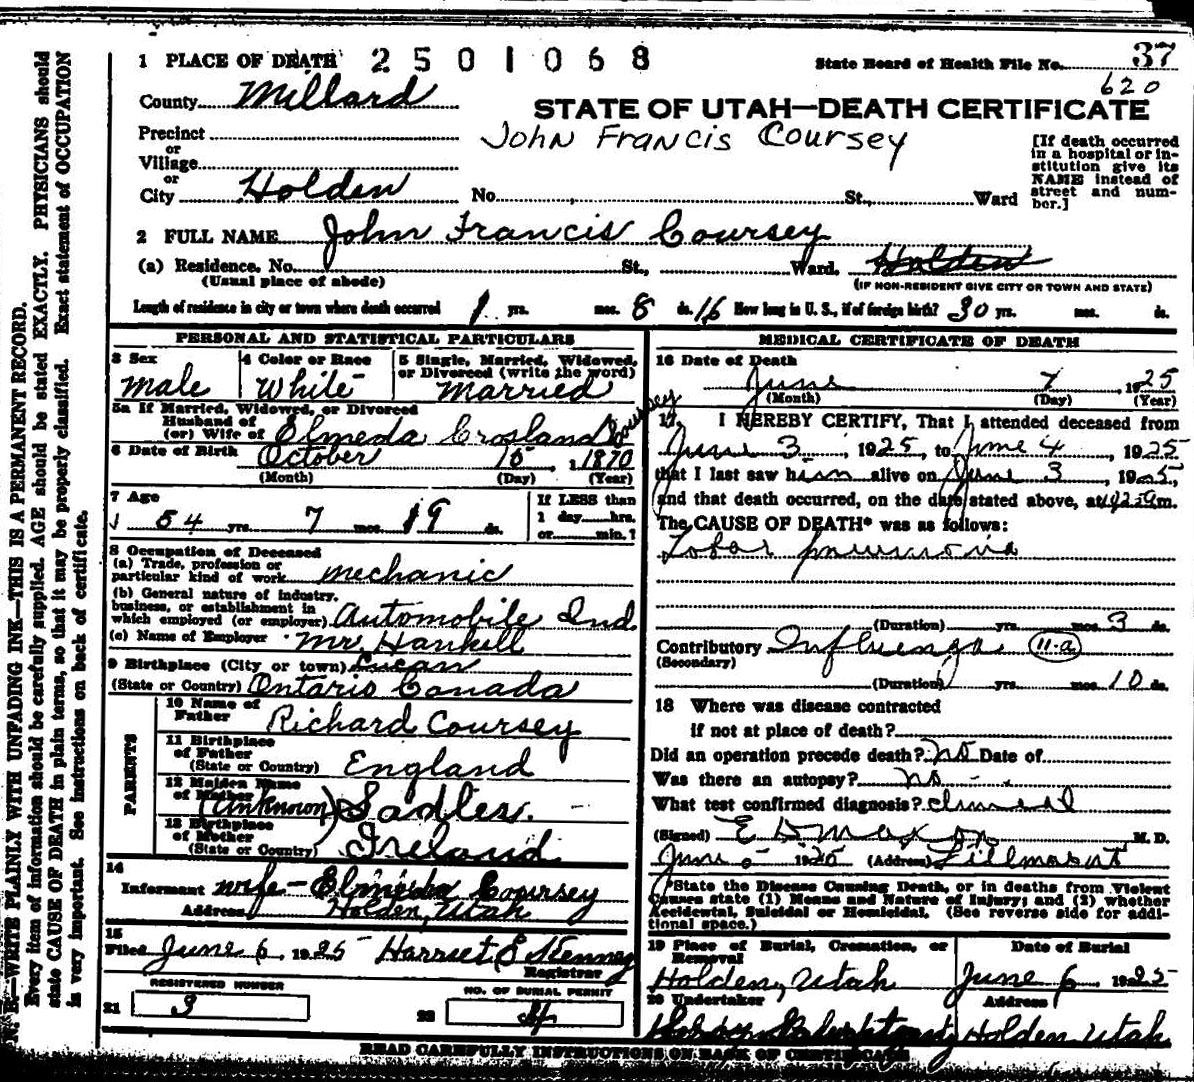 1 PLACE OF DEATH 2501068
State Board of Health File No. 37
620
County Millard
STATE OF UTAH—DEATH CERTIFICATE
John Francis Coursey
Precinct
or
Village
or
City Holden No. St., Ward
[If death occurred
in a hospital or in-
stitution give its
NAME instead of
street and num-
ber.]
2 FULL NAME John Francis Coursey
(a) Residence. No. St., Ward. Holden
(Usual place of abode) (IF NON-RESIDENT GIVE CITY OR TOWN AND STATE)
Length of residence in city or town where death occurred 1 yrs. mos. 8 ds. 16 How long in U. S., if of foreign birth? 30 yrs. mos. ds.
PERSONAL AND STATISTICAL PARTICULARS
3 Sex
male
4 Color or Race
White
5 Single, Married, Widowed,
or Divorced (write the word)
Married
5a If Married, Widowed, or Divorced
Husband of
(or) Wife of Elmeda Crosland Coursey
6 Date of Birth October 15, 1870
(Month) (Day) (Year)
7 Age
54 yrs. 7 mos. 19 ds.
If LESS than
1 day hrs.
or min.?
8 Occupation of Deceased
(a) Trade, profession or
particular kind of work mechanic
(b) General nature of industry,
business, or establishment in
which employed (or employer) Automobile Ind.
(c) Name of Employer Mr. Hankell
9 Birthplace (City or town) Lucan
(State or Country) Ontario Canada
PARENTS
10 Name of
Father Richard Coursey
11 Birthplace
of Father
(State or Country) England
12 Maiden Name
of Mother (unknown) Sadler.
13 Birthplace
of Mother
(State or Country) Ireland
14
Informant wife - Elmeda Coursey
Address Holden, Utah
15
Filed June 6, 1925 Harriet E Stenney
Registrar
REGISTERED NUMBER
21 3
NO. OF BURIAL PERMIT
22
MEDICAL CERTIFICATE OF DEATH
16 Date of Death
June 1925
(Month) (Day) (Year)
17. I HEREBY CERTIFY, That I attended deceased from
June 3, 1925, to June 4, 1925
that I last saw him alive on June 3, 1925,
and that death occurred, on the date stated above, at m.
The CAUSE OF DEATH* was as follows:
Lobar pneumonia
(Duration) yrs. mos. 3 ds.
Contributory Influenza 11-a
(Secondary)
(Duration) yrs. mos. 10 ds.
18 Where was disease contracted
if not at place of death?
Did an operation precede death? No Date of
Was there an autopsy? no
What test confirmed diagnosis? clinical
(Signed) M. D.
June 5 1925 (Address) Fillmore Ut
*State the Disease Causing Death, or in deaths from Violent
Causes state (1) Means and Nature of Injury; and (2) whether
Accidental, Suicidal or Homicidal. (See reverse side for addi-
tional space.)
19 Place of Burial, Cremation, or
Removal
Holden, Utah
Date of Burial
June 6 1925
20 Undertaker
Address
Holden Utah
READ CAREFULLY INSTRUCTIONS ON BACK OF CERTIFICATE
N. B.—WRITE PLAINLY WITH UNFADING INK—THIS IS A PERMANENT RECORD.
Every item of information should be carefully supplied. AGE should be stated EXACTLY. PHYSICIANS should
state CAUSE OF DEATH in plain terms, so that it may be properly classified. Exact statement of OCCUPATION
is very important. See instructions on back of certificate.